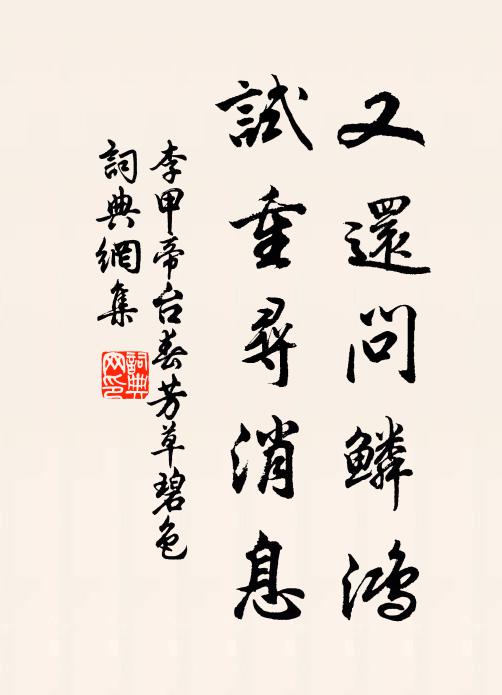 又還問鱗鴻
試重尋消息
李甲帝台春芳草碧色
詞典網集
詞典網印